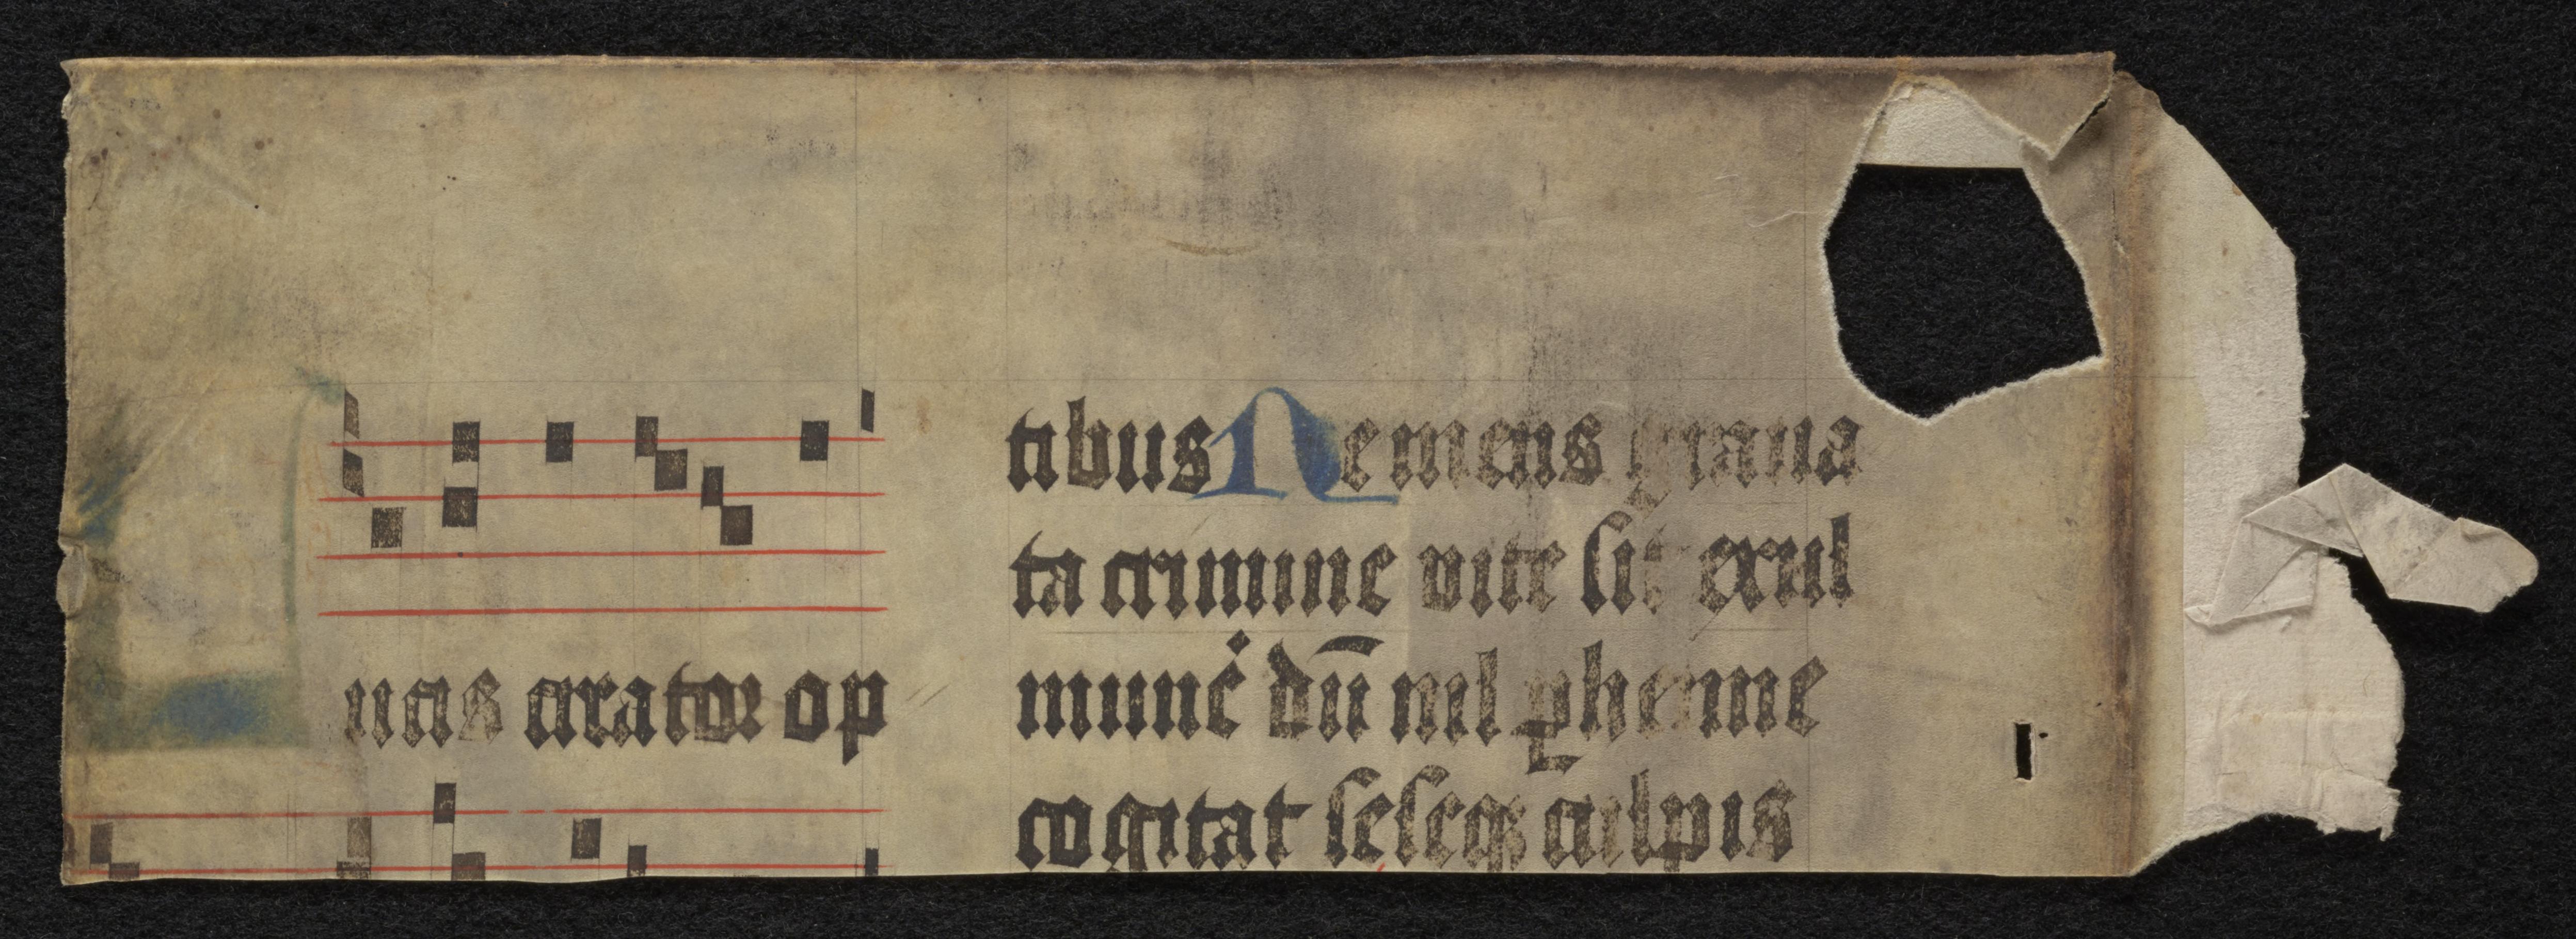 ucis creator op
tibus Ne mens graua
ta crimine vite sit exul
mune᷑ dū nil ꝑhenne
cogitat seseqꝫ culpis